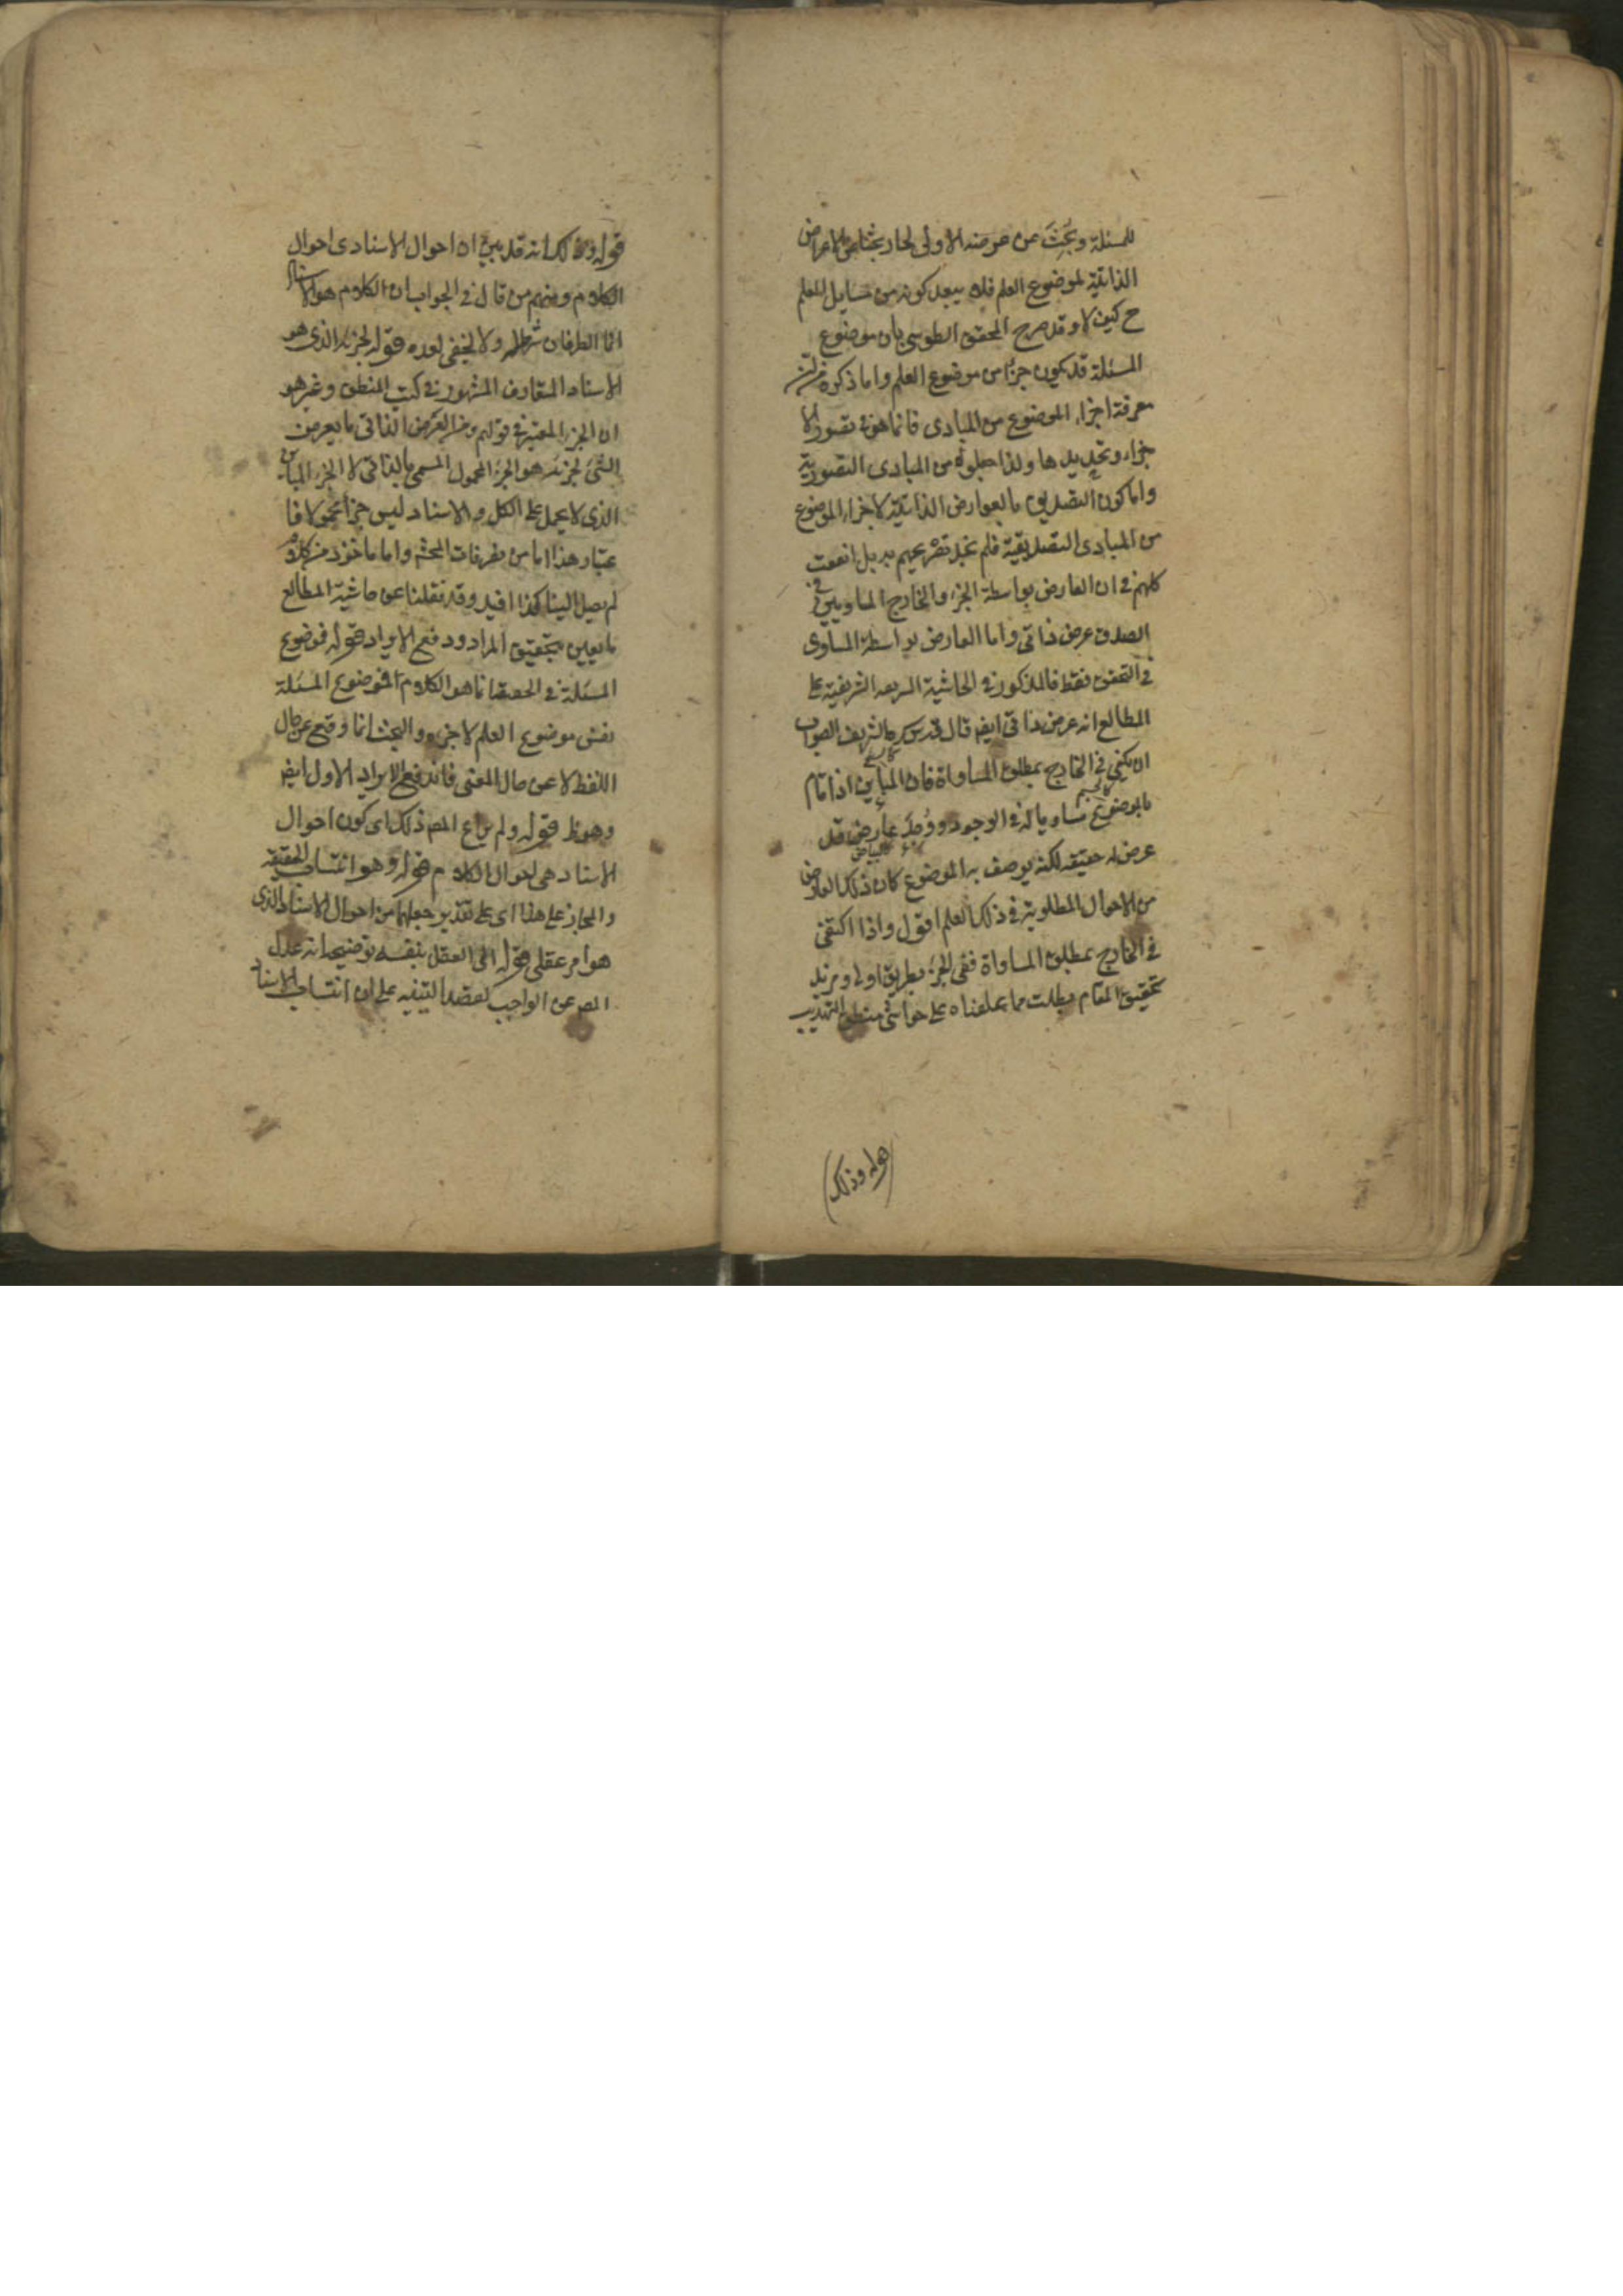 للمسئلة وبُحِثَ عن عرضه الاولى لكان بحثا عن الاعراض
الذاتية لموضوع العلم فلا يبعد كونه من مسايل العلم
ح كيف لا وقد صرح المحقق الطوسى بان موضوع
المسئلة قد يكون جزأ من موضوع العلم واما ذكره من ان
معرفة اجزاء الموضوع من المبادى فانما هو فى تصور الا
جزاء وتحديدها ولذا جعلوه من المبادى التصورية
واما كون التصديق بالعوارض الذاتية لاجزاء الموضوع
من المبادى التصديقية فلم نجد تصريحهم به بل اتفقت
كلمتهم فى ان العارض بواسطة الجزء والخارج المساويين فى
الصدق عرض ذاتى واما العارض بواسطة المساوى
فى التحقق فقط فالمذكور فى الحاشية الشريفية على
المطالع انه عرض ذاتى ايضا قال قدس سره الشريف الصواب
ان يكتفى فى الخارج بمطلق المساواة فان المباين اذا قام
بالموضوع مساويا له فى الوجود ووُجِدَ له عارض قد
عرض له حقيقة لكنه يوصف به الموضوع كان ذلك العارض
من الاحوال المطلوبة فى ذلك العلم اقول واذا اكتفى
فى الخارج بمطلق المساواة ففى الجزء بطريق اولى ومزيد
تحقيق المقام يطلب مما علقناه على حواشى منطق التهذيب
قوله وذلك
قوله وذلك لانه قد يبين ان احوال الاسناد احوال
الكلام ومنهم من قال فى الجواب ان الكلام هو الاسناد
انما الطرفان شرط له ولا يخفى بعده قوله لجزئه الذى هو
الاسناد المتعارف المشهور فى كتب المنطق وغيره هو
ان الجزء المعتبر فى قولهم ومن العرض الذاتى ما يعرض
الشئ لجزئه هو الجزء المحمول المسمى بالذاتى لا الجزء المباين
الذى لا يحمل على الكل والاسناد ليس جزأ محمولا فا
عتبار هذا اما من تصرفات المحشى واما ماخوذ من كلام
لم يصل الينا كذا افيد وقد نقلنا عن حاشية المطالع
ما يعين تحقيق المراد ودفع الايراد قوله فموضوع
المسئلة فى الحقيقة انما هو الكلام اى موضوع المسئلة
نفس موضوع العلم لا جزءه والبحث انما وقع عن حال
اللفظ لا عن حال المعنى فاندفع الايراد الاول ايضا
وهو ظ قوله ولم يراع المص ذلك اى كون احوال
الاسناد هى احوال الكلام قوله وهو انتساب الحقيقة
والمجاز على هذا اى على تقدير جعلهما من احوال الاسناد الذى
هو امر عقلى قوله الى العقل بنفسه توضيحه انه عدل
المص عن الواجب لقصد التنبيه على ان انتساب الاسناد